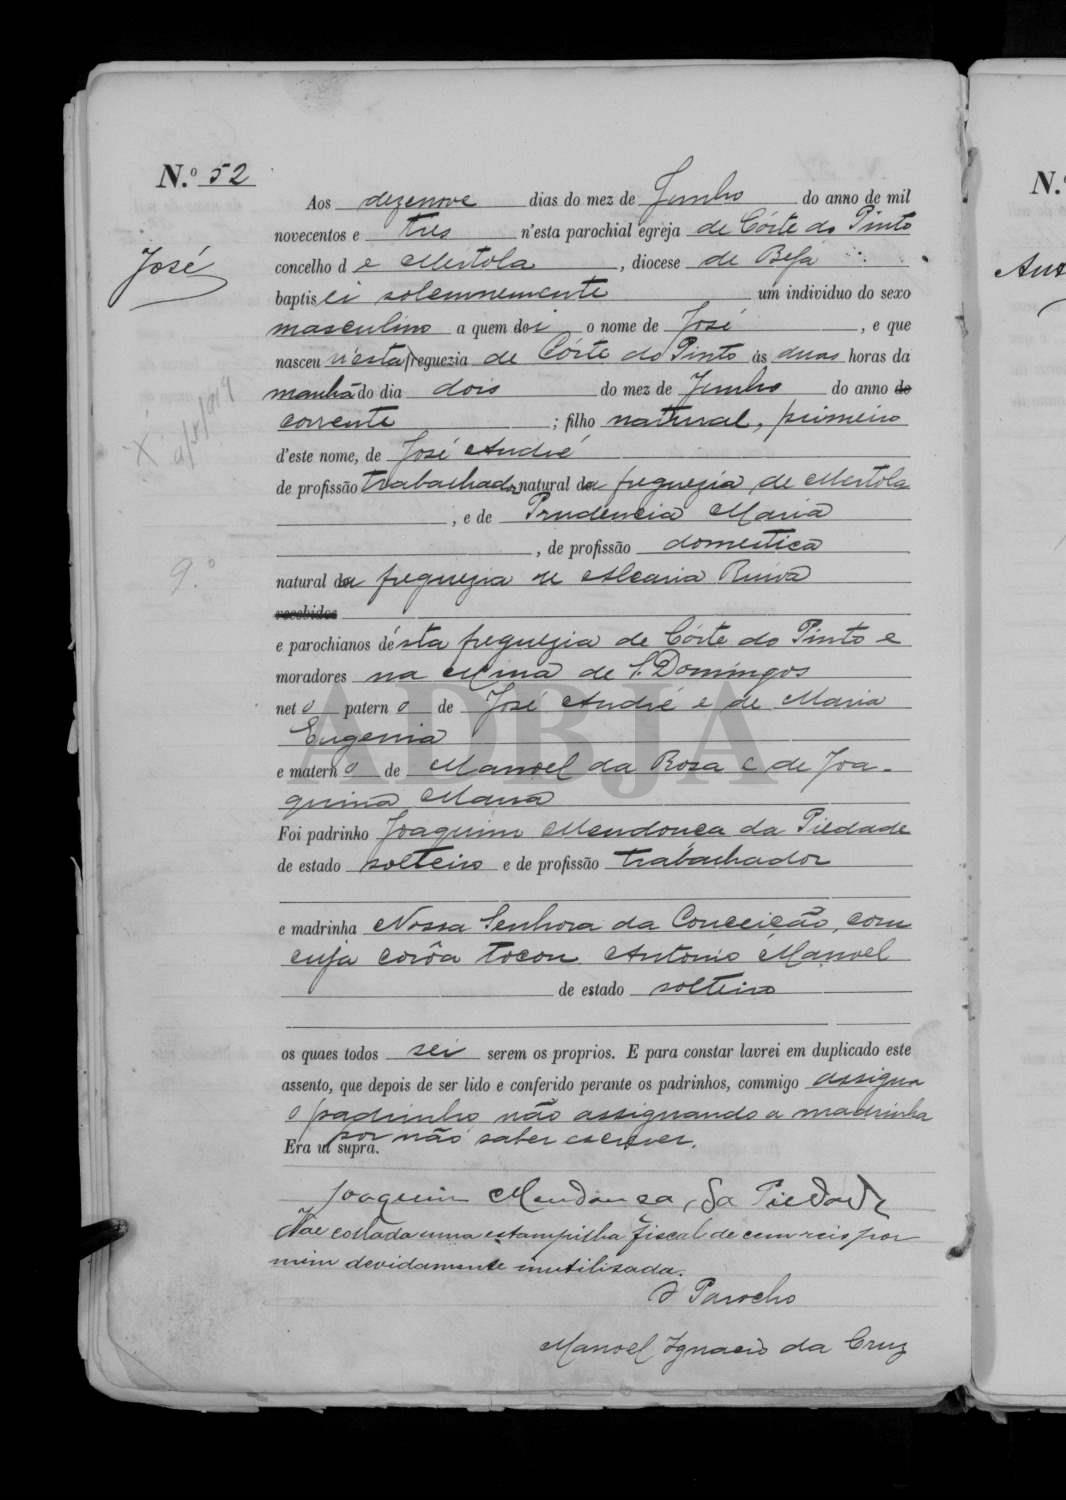 N.º 52
José
Aos dezenove dias do mez de Junho do anno de mil
novecentos e tres n'esta parochial egreja de Côrte do Pinto
concelho de Mertola, diocese de Beja
baptisei solemnemente um individuo do sexo
masculino a quem dei o nome de José, e que
nasceu n'esta freguezia de Côrte do Pinto ás duas horas da
manhã do dia dois do mez de Junho do anno do
corrente; filho natural, primeiro
d'este nome, de José André
de profissão trabalhador natural da freguezia de Mertola
, e de Prudencia Maria
, de profissão domestica
natural da freguezia de Alcaria Ruiva
recebidos
e parochianos désta freguezia de Côrte do Pinto e
moradores na Mina de S. Domingos
neto paterno de José André e de Maria
Eugenia
e materno de Manoel da Rosa e de Joa-
quina Maria
Foi padrinho Joaquim Mendonça da Piedade
de estado solteiro e de profissão trabalhador
e madrinha Nossa Senhora da Conceição, com
cuja corôa tocou Antonio Manoel
de estado solteiro
os quaes todos sei serem os proprios. E para constar lavrei em duplicado este
assento, que depois de ser lido e conferido perante os padrinhos, commigo assigna
o padrinho não assignando a madrinha
por não saber escrever.
Era ut supra.
Joaquim Mendonca da Piedade
Vae collada uma estampilha fiscal de cem reis por
mim devidamente inutilisada.
O Parocho
Manoel Ignacio da Cruz
9.º
ADBJA
N.º